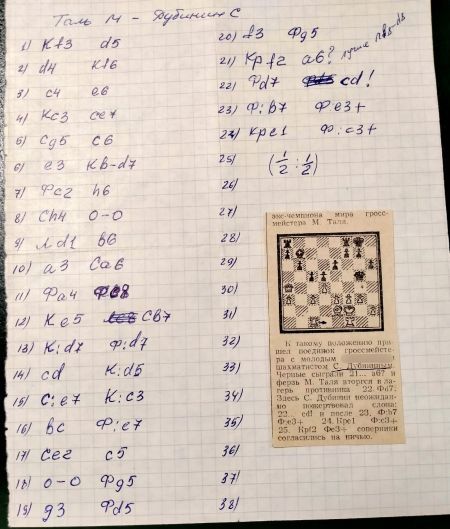 Таль М - Дубинин С
1) Kf3 d5
2) d4 Kf6
3) c4 e6
4) Kc3 Ce7
5) Cg5 C6
6) e3 Kb-d7
7) Фc2 h6
8) Ch4 0-0
9) Лd1 b6
10) a3 Ca6
11) Фa4
12) Ke5 Cb7
13) K:d7 Ф:d7
14) cd K:d5
15) C:e7 K:c3
16) bc Ф:e7
17) Ce2 c5
18) 0-0 Фg5
19) g3 Фd5
20) f3 Фg5
21) Kpf2 a6? лучше
22) Фd7 cd!
23) Ф:b7 Фe3+
24) Kpe1 Ф:c3+
25) (1/2 : 1/2)
26)
27)
28)
29)
30)
31)
32)
33)
34)
35)
36)
37)
38)
экс-чемпиона мира гросс-
мейстера М. Таля.
К такому положению при-
шел поединок гроссмейсте-
ра с молодым
шахматистом С. Дубининым.
Черные сыграли 21... a6? и
ферзь М. Таля вторгся в ла-
герь противника 22. Фd7.
Здесь С. Дубинин неожидан-
но пожертвовал слона:
22... cd и после 23. Ф:b7
Ф:e3+ 24. Kpe1 Ф:c3+
25. Kpf2 Фe3+ соперники
согласились на ничью.